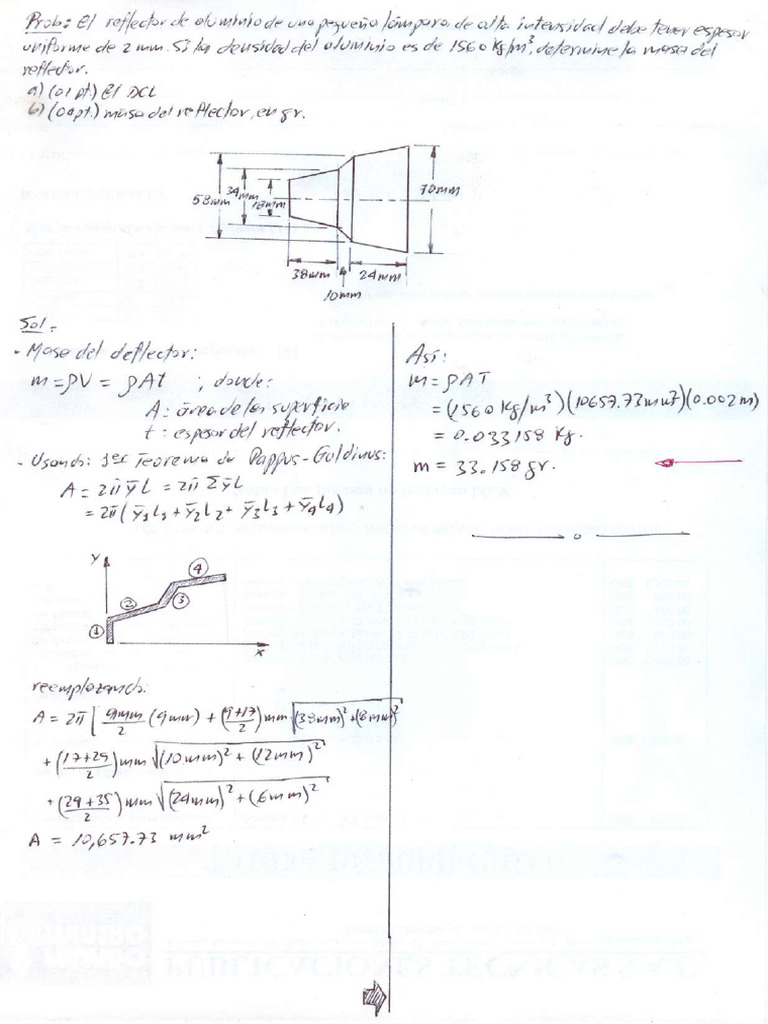 Prob: El reflector de aluminio de una pequeña lámpara de alta intensidad debe tener espesor
uniforme de 2 mm. Si la densidad del aluminio es de 1560 Kg/m³, determine la masa del
reflector.
a) (01 pt.) El DCL
b) (00 pt.) masa del reflector, en gr.
58mm
34mm
18mm
70mm
38mm
24mm
10mm
Sol.-
- Masa del deflector:
m = ρV = ρAt ; donde:
A : área de la superficie
t : espesor del reflector.
- Usando: 1er Teorema de Pappus-Guldinus:
A = 2π ȳ L = 2π Σ ȳ L
= 2π (ȳ₁L₁ + ȳ₂L₂ + ȳ₃L₃ + ȳ₄L₄)
y
4
2
3
1
x
reemplazando:
A = 2π [ 9mm/2 (9mm) + ((9+17)/2) mm √((38mm)² + (8mm)²)
+ ((17+29)/2) mm √((10mm)² + (12mm)²)
+ ((29+35)/2) mm √((24mm)² + (6mm)²)
A = 10,657.73 mm²
Así:
m = ρAT
= (1560 Kg/m³)(10657.73mm²)(0.002m)
= 0.033158 Kg.
m = 33.158 gr.